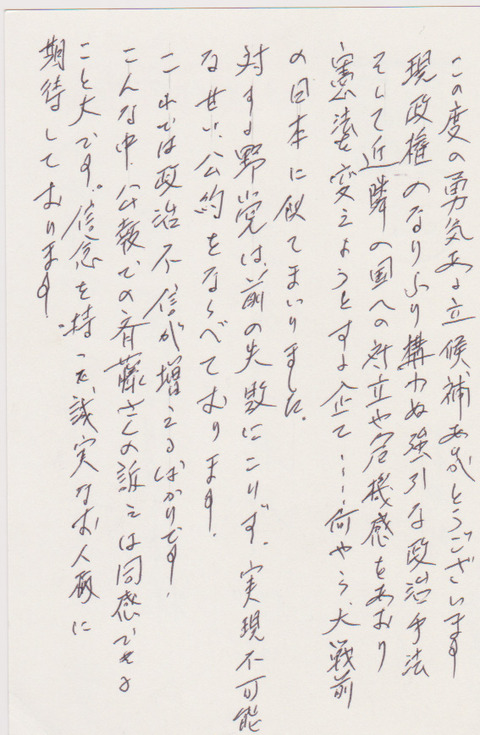 この度の勇気ある立候補ありがとうございます
現政権のなりふり構わぬ強引な政治手法
そして近隣の国への対立や危機感をあおり
憲法を変えようとする企て……何やら大戦前
の日本に似てまいりました。
対する野党は、前の失敗にこりず、実現不可能
な甘い公約をならべております。
これでは政治不信が増えるばかりです。
こんな中公報での斉藤さんの訴えは同感できる
こと大です。信念を持った、誠実なお人柄に
期待しております。